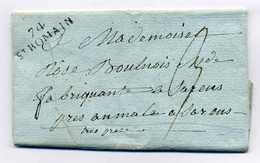 74
ST ROMAIN
A Mademoiselle
Rose Boulnois
fabriquante a Sarcus
pres aumale a Sarcus
tres pressé